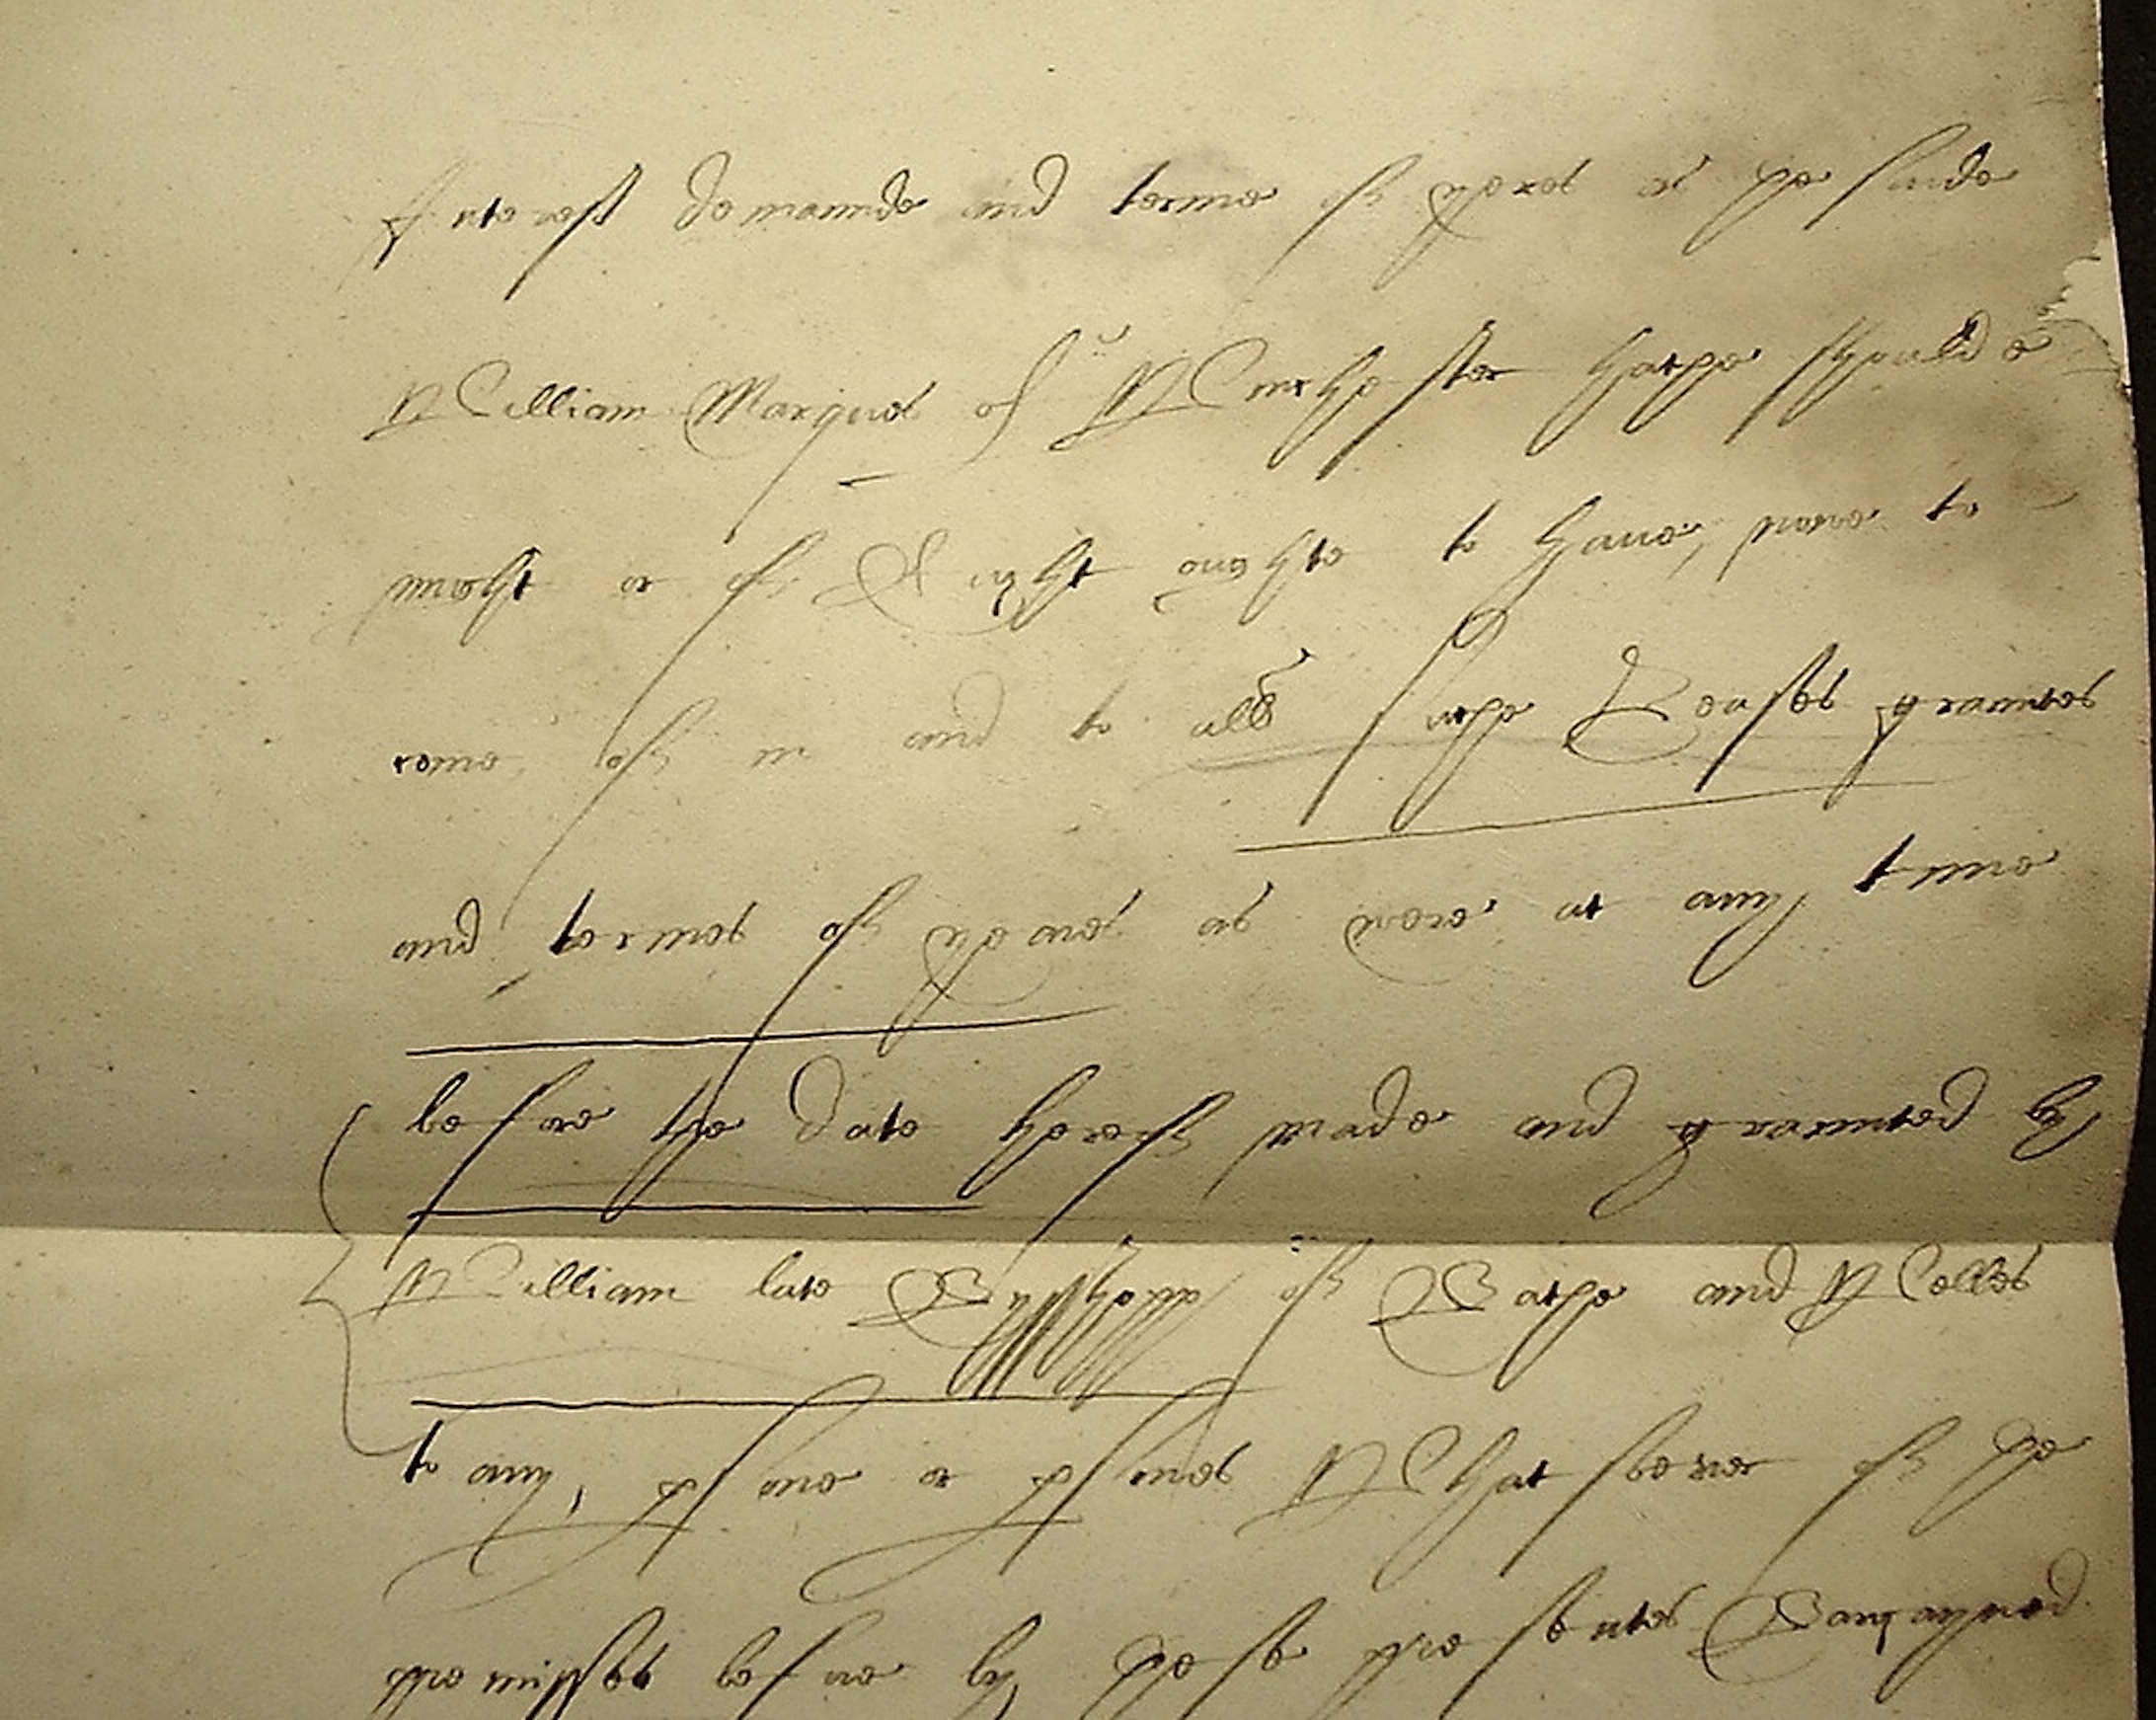 Interest demaunde and terme of yeres as the saide
William Marques of Winchester hathe shoulde
might or of Right oughte to have, unto
come of in and to all suche Leases grauntes
and termes of yeares as were at any time
before the date hereof made and graunted by
William late Bysshopp of Bathe and Welles
to any, psone or psones Whatsoever of the
premisses before by these presentes Bargayned